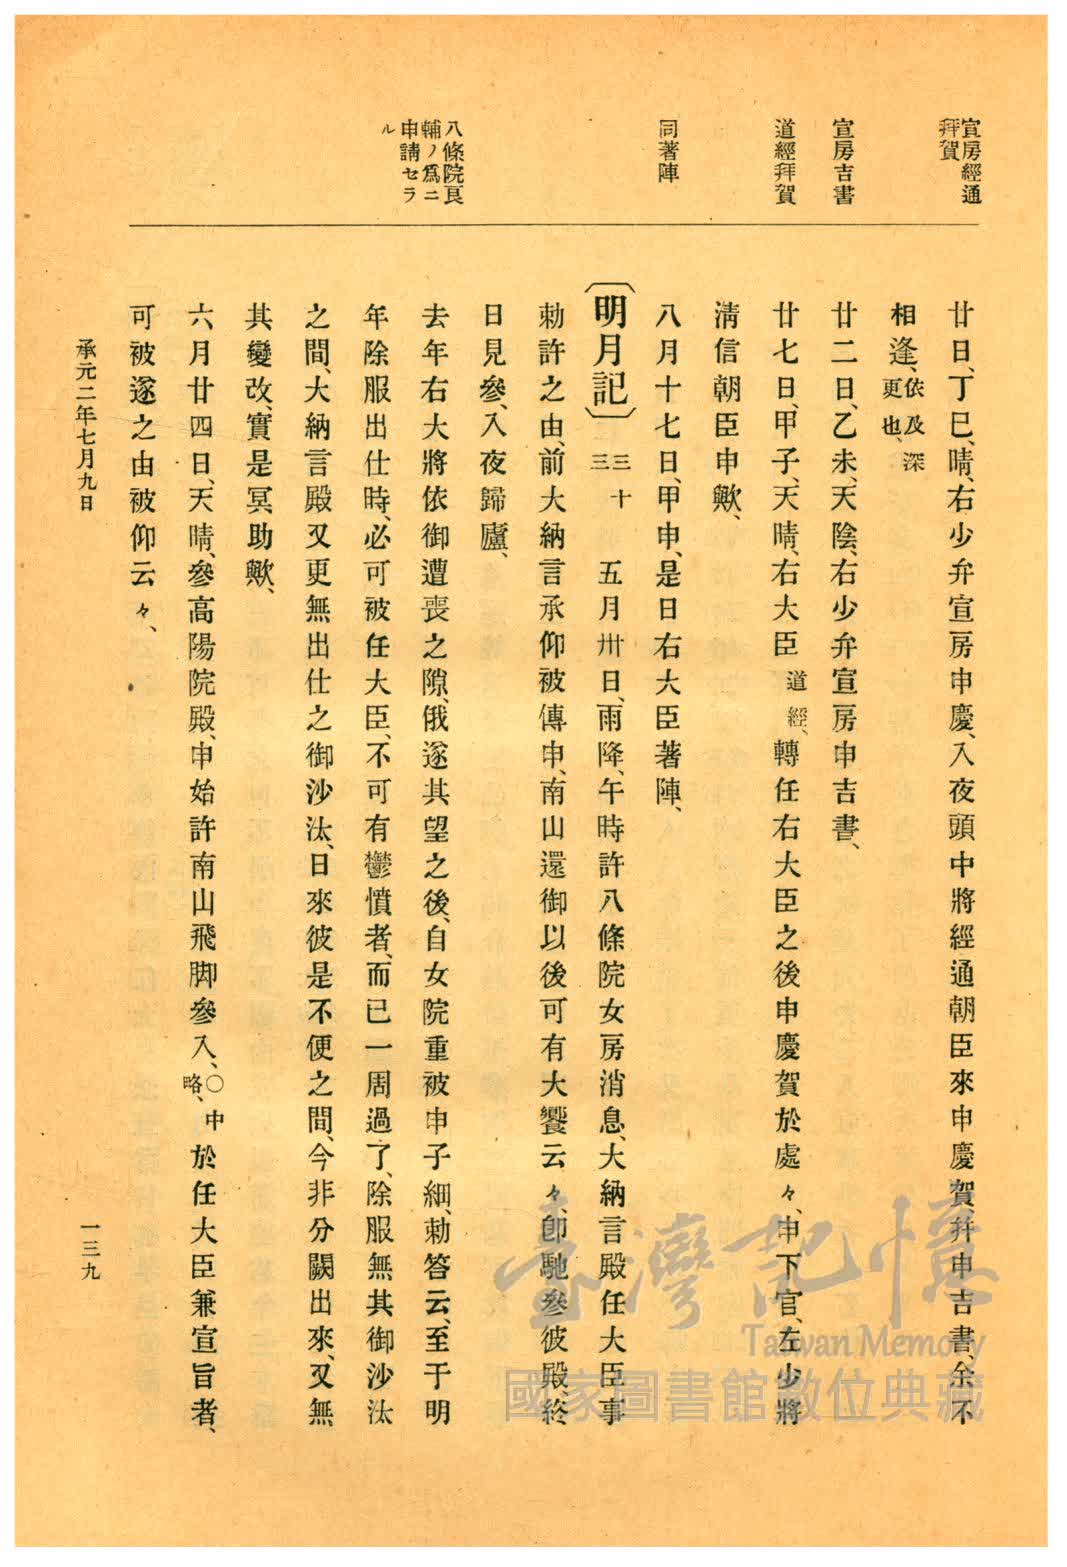 宣房經通
拜賀
宣房吉書
道經拜賀
同著陣
八條院良
輔ノ爲ニ
申請セラ
ル
廿日、丁巳、晴、右少弁宣房申慶、入夜頭中將經通朝臣來申慶賀、幷申吉書、余不
相逢、依及深更也、
廿二日、乙未、天陰、右少弁宣房申吉書、
廿七日、甲子、天晴、右大臣道經、轉任右大臣之後申慶賀於處々、申下官、左少將
淸信朝臣申歟、
八月十七日、甲申、是日右大臣著陣、
〔明月記〕三十三 五月卅日、雨降、午時許八條院女房消息、大納言殿任大臣事
勅許之由、前大納言承仰被傳申、南山還御以後可有大饗云々、卽馳參彼殿、終
日見參、入夜歸廬、
去年右大將依御遭喪之隙、俄遂其望之後、自女院重被申子細、勅答云、至于明
年除服出仕時、必可被任大臣、不可有鬱憤者、而已一周過了、除服無其御沙汰
之間、大納言殿又更無出仕之御沙汰、日來彼是不便之間、今非分闕出來、又無
其變改、實是冥助歟、
六月廿四日、天晴、參高陽院殿、申始許南山飛脚參入、○中略、於任大臣兼宣旨者、
可被遂之由被仰云々、
承元二年七月九日
一三九
臺灣記憶
Taiwan Memory
國家圖書館數位典藏